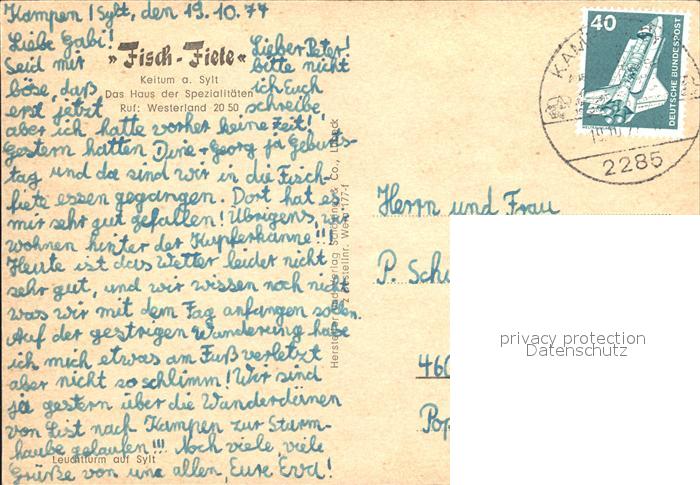 Kampen / Sylt, den 19.10.77
Liebe Gabi! Lieber Peter!
Seid mir bitte nicht
böse, daß ich Euch
erst jetzt schreibe
aber ich hatte vorher keine Zeit!
Gestern hatten Dirie + Georg ja Geburts-
tag und da sind wir in die Fisch-
fiete essen gegangen. Dort hat es
mir sehr gut gefallen! Übrigens, wir
wohnen hinter der Kupferkanne!!!
Heute ist das Wetter leider nicht
sehr gut, und wir wissen noch nicht
was wir mit dem Tag anfangen sollen.
Auf der gestrigen Wanderung habe
ich mich etwas am Fuß verletzt
aber nicht so schlimm! Wir sind
ja gestern über die Wanderdünen
von List nach Kampen zur Sturm-
haube gelaufen!!! Noch viele, viele
Grüße von uns allen, Eure
»Fisch-Fiete«
Keitum a. Sylt
Das Haus der Spezialitäten
Ruf: Westerland 20 50
Leuchtturm auf Sylt
40
DEUTSCHE BUNDESPOST
2285
Herrn und Frau
P. Schu
460
Pop
privacy protection
Datenschutz